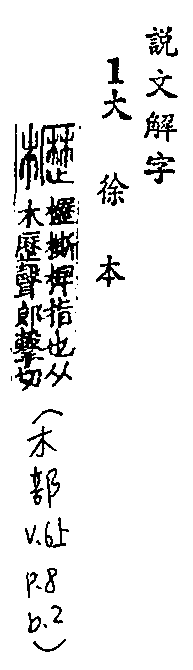 説文解字
1大徐本
櫪 櫪㯕椑指也从
木歷聲郎擊切
(木部
v.6上
p.8
b.2)